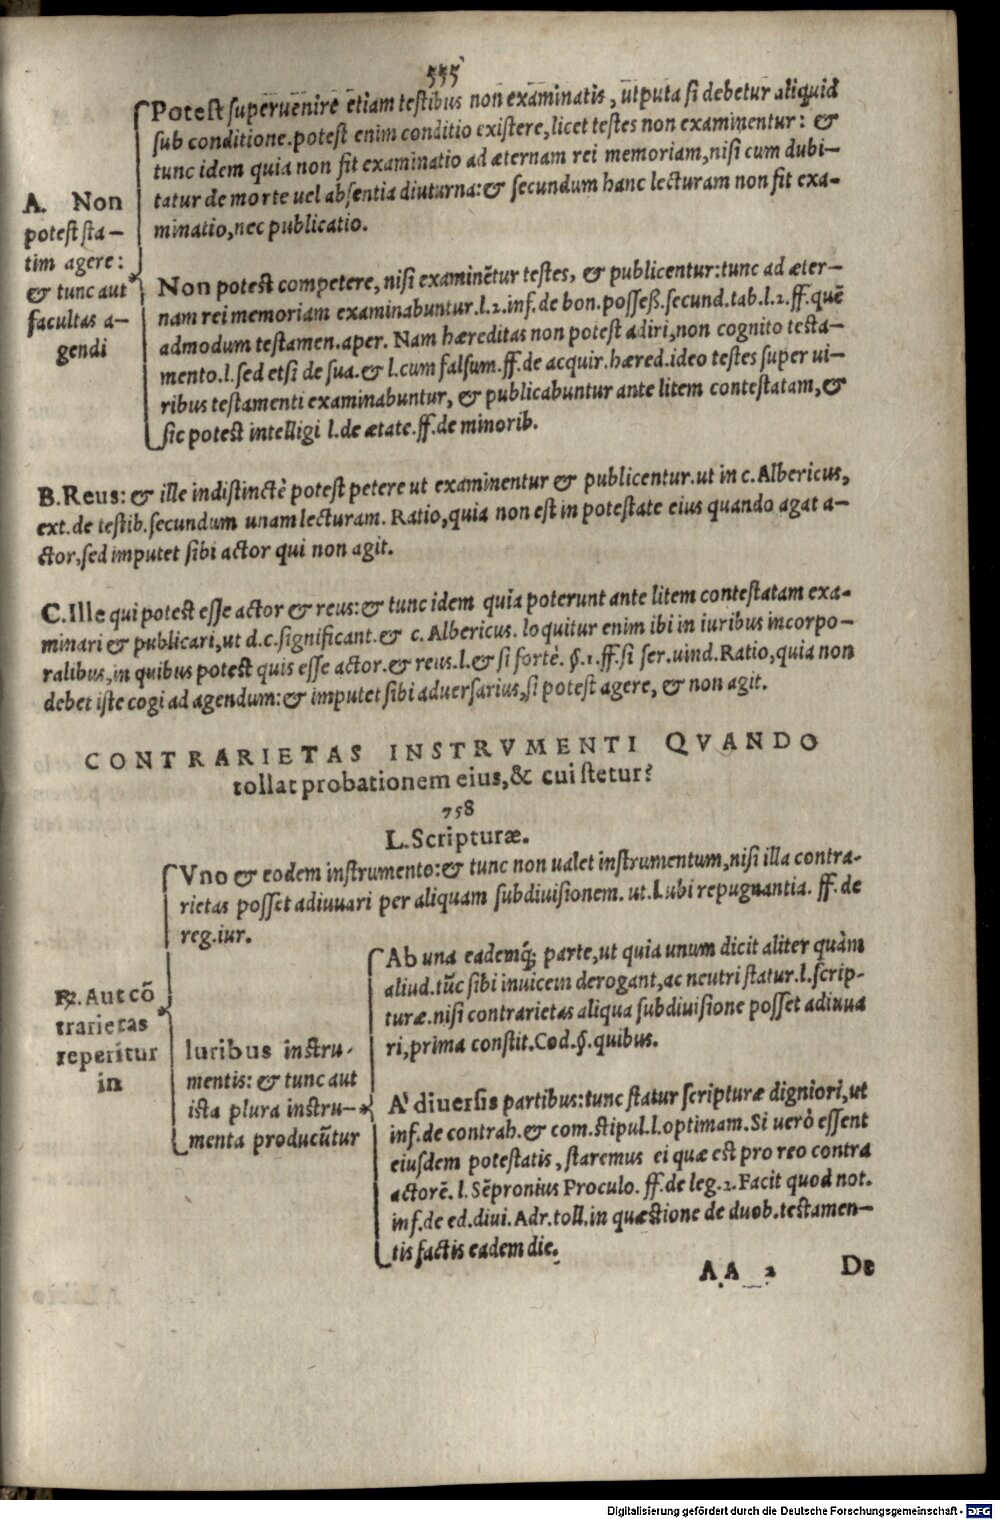 555
A. Non
potest sta-
tim agere:
& tunc aut
facultas a-
gendi
Potest superuenire etiam testibus non examinatis, utputa si debetur aliquid
sub conditione.potest enim conditio existere,licet testes non examinentur: &
tunc idem quia non fit examinatio ad æternam rei memoriam,nisi cum dubi-
tatur de morte uel absentia diuturna:& secundum hanc lecturam non fit exa-
minatio,nec publicatio.
Non potest competere, nisi examinētur testes, & publicentur:tunc ad æter-
nam rei memoriam examinabuntur.l.2.inf.de bon.posseß.secund.tab.l.2.ff.quē
admodum testamen.aper. Nam hæreditas non potest adiri,non cognito testa-
mento.l.sed etsi de sua.& l.cum falsum.ff.de acquir.hæred.ideo testes super ui-
ribus testamenti examinabuntur, & publicabuntur ante litem contestatam,&
sic potest intelligi l.de ætate.ff.de minorib.
B.Reus: & ille indistinctè potest petere ut examinentur & publicentur.ut in c.Albericus,
ext.de testib.secundum unam lecturam. Ratio,quia non est in potestate eius quando agat a-
ctor,sed imputet sibi actor qui non agit.
C.Ille qui potest esse actor & reus:& tunc idem quia poterunt ante litem contestatam exa-
minari & publicari,ut d.c.significant.& c. Albericus. loquitur enim ibi in iuribus incorpo-
ralibus,in quibus potest quis esse actor.& reus.l.& si fortè. §.1.ff.si ser.uind.Ratio,quia non
debet iste cogi ad agendum:& imputet sibi aduersarius,si potest agere, & non agit.
CONTRARIETAS INSTRVMENTI QVANDO
tollat probationem eius,& cui stetur?
758
L.Scripturæ.
℞. Aut cō
trarietas
reperitur
in
Vno & eodem instrumento:& tunc non ualet instrumentum,nisi illa contra-
rietas posset adiuuari per aliquam subdiuisionem. ut.l.ubi repugnantia. ff.de
reg.iur.
luribus instru-
mentis: & tunc aut
ista plura instru-
menta producūtur
Ab una eademq́; parte,ut quia unum dicit aliter quàm
aliud.tūc sibi inuicem derogant,ac neutri statur.l.scrip-
turæ.nisi contrarietas aliqua subdiuisione posset adiuua
ri,prima constit.Cod.§.quibus.
A' diuersis partibus:tunc statur scripturæ digniori,ut
inf.de contrah.& com.stipul.l.optimam.Si uerò essent
eiusdem potestatis, staremus ei quæ est pro reo contra
actorē. l. Sēpronius Proculo. ff.de leg.2.Facit quod not.
inf.de ed.diui.Adr.toll.in quæstione de duob.testamen-
tis factis eadem die.
AA 2 De
Digitalisierung gefördert durch die Deutsche Forschungsgemeinschaft - DFG